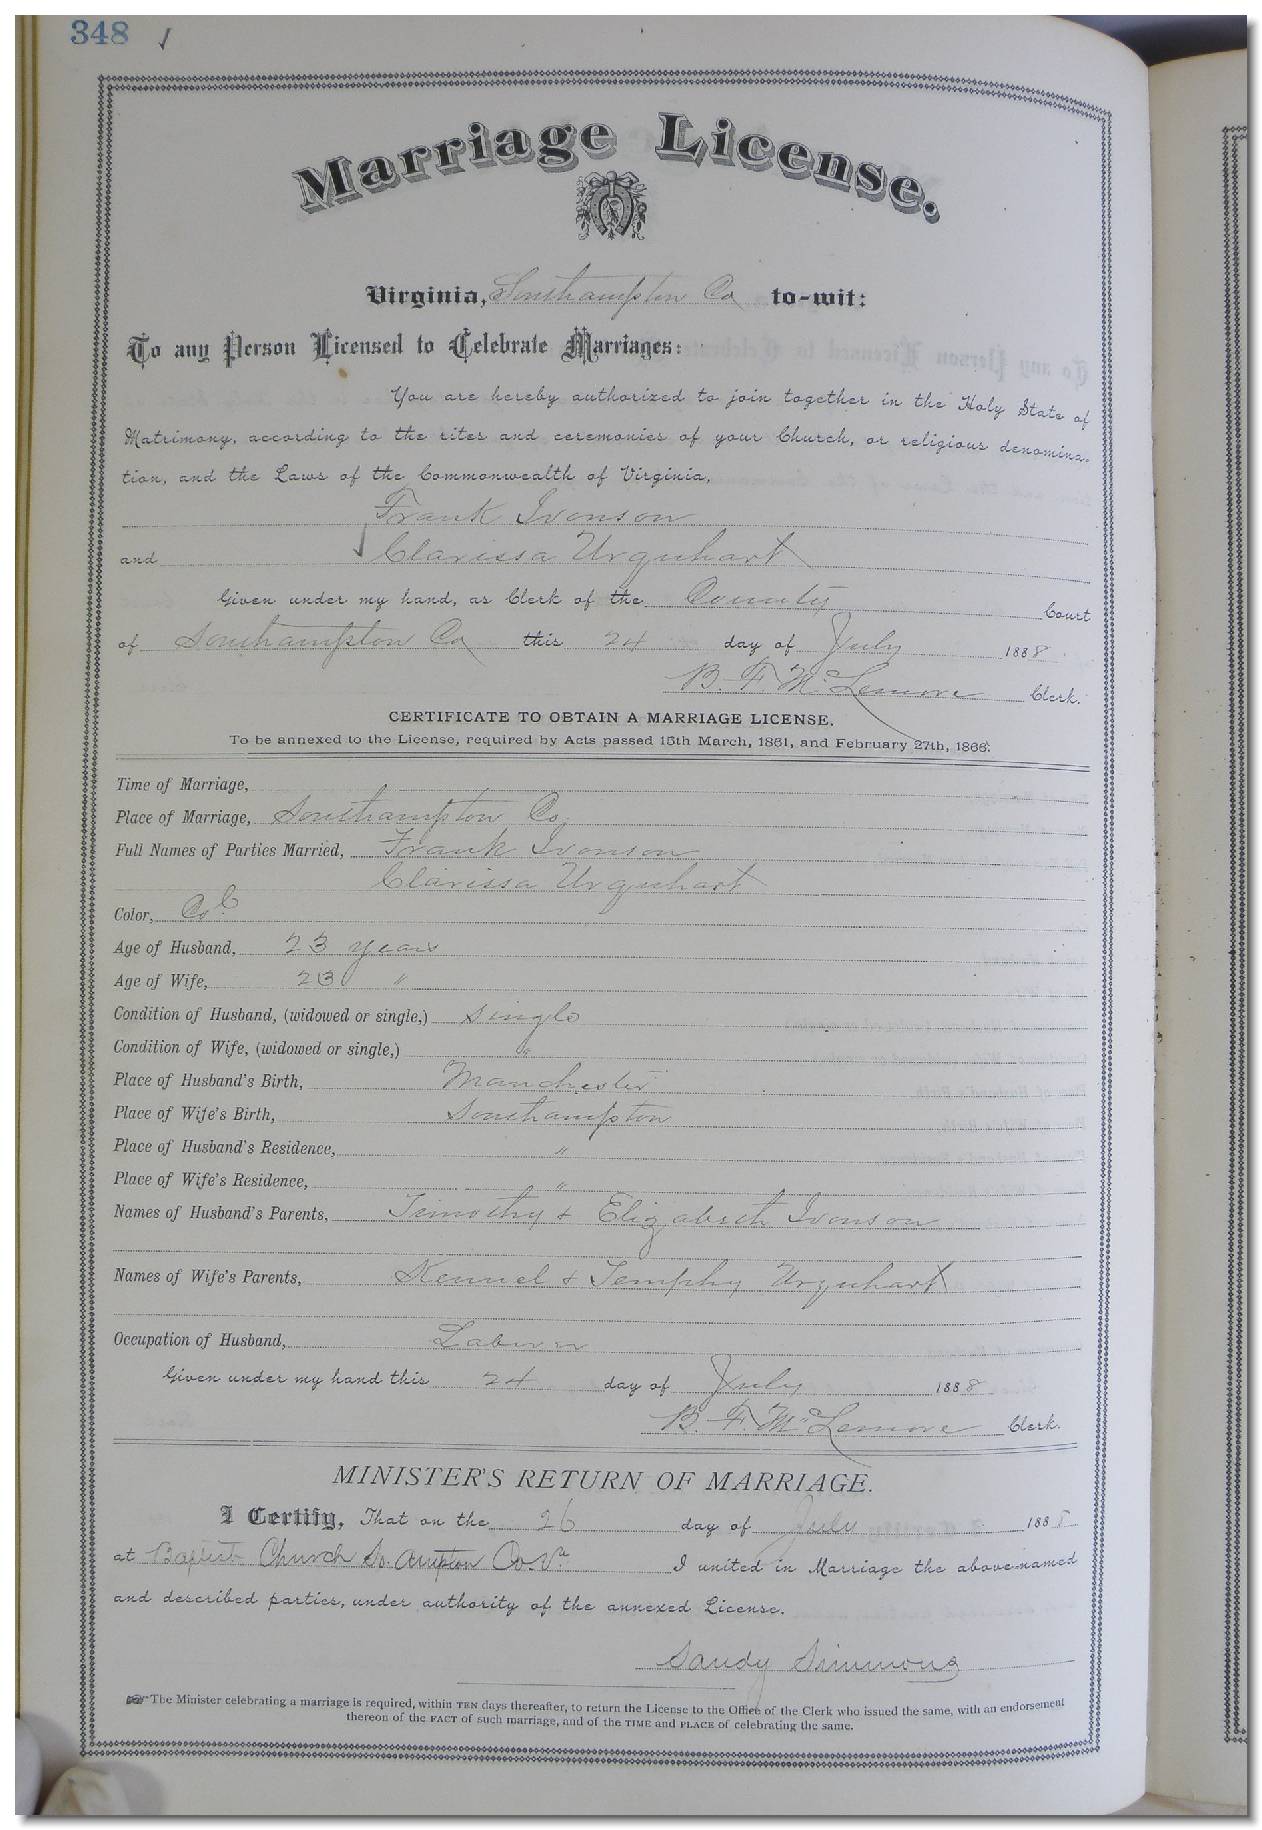 348
Marriage License.
Virginia, Southampton Co to-wit:
To any Person Licensed to Celebrate Marriages:
You are hereby authorized to join together in the Holy State of
Matrimony, according to the rites and ceremonies of your Church, or religious denomina-
tion, and the Laws of the Commonwealth of Virginia,
Frank Ivonson
and Clarissa Urquhart
Given under my hand, as Clerk of the County Court
of Southampton Co this 24 day of July 1888
B. F. McLemore Clerk.
CERTIFICATE TO OBTAIN A MARRIAGE LICENSE.
To be annexed to the License, required by Acts passed 15th March, 1861, and February 27th, 1866.
Time of Marriage,
Place of Marriage, Southampton Co.
Full Names of Parties Married, Frank Ivonson
Clarissa Urquhart
Color, Col.
Age of Husband, 23 years
Age of Wife, 23 "
Condition of Husband, (widowed or single,) Single
Condition of Wife, (widowed or single,) "
Place of Husband's Birth, Manchester
Place of Wife's Birth, Southampton
Place of Husband's Residence, "
Place of Wife's Residence, "
Names of Husband's Parents, Timothy & Elizabeth Ivonson
Names of Wife's Parents, & Urquhart
Occupation of Husband, Laborer
Given under my hand this 24 day of July 1888
B. F. McLemore Clerk.
MINISTER'S RETURN OF MARRIAGE.
I Certify, That on the 26 day of July 1888
at Baptist Church So.ampton Co. Va I united in Marriage the above-named
and described parties, under authority of the annexed License.
Sandy Simmons
The Minister celebrating a marriage is required, within TEN days thereafter, to return the License to the Office of the Clerk who issued the same, with an endorsement
thereon of the FACT of such marriage, and of the TIME and PLACE of celebrating the same.